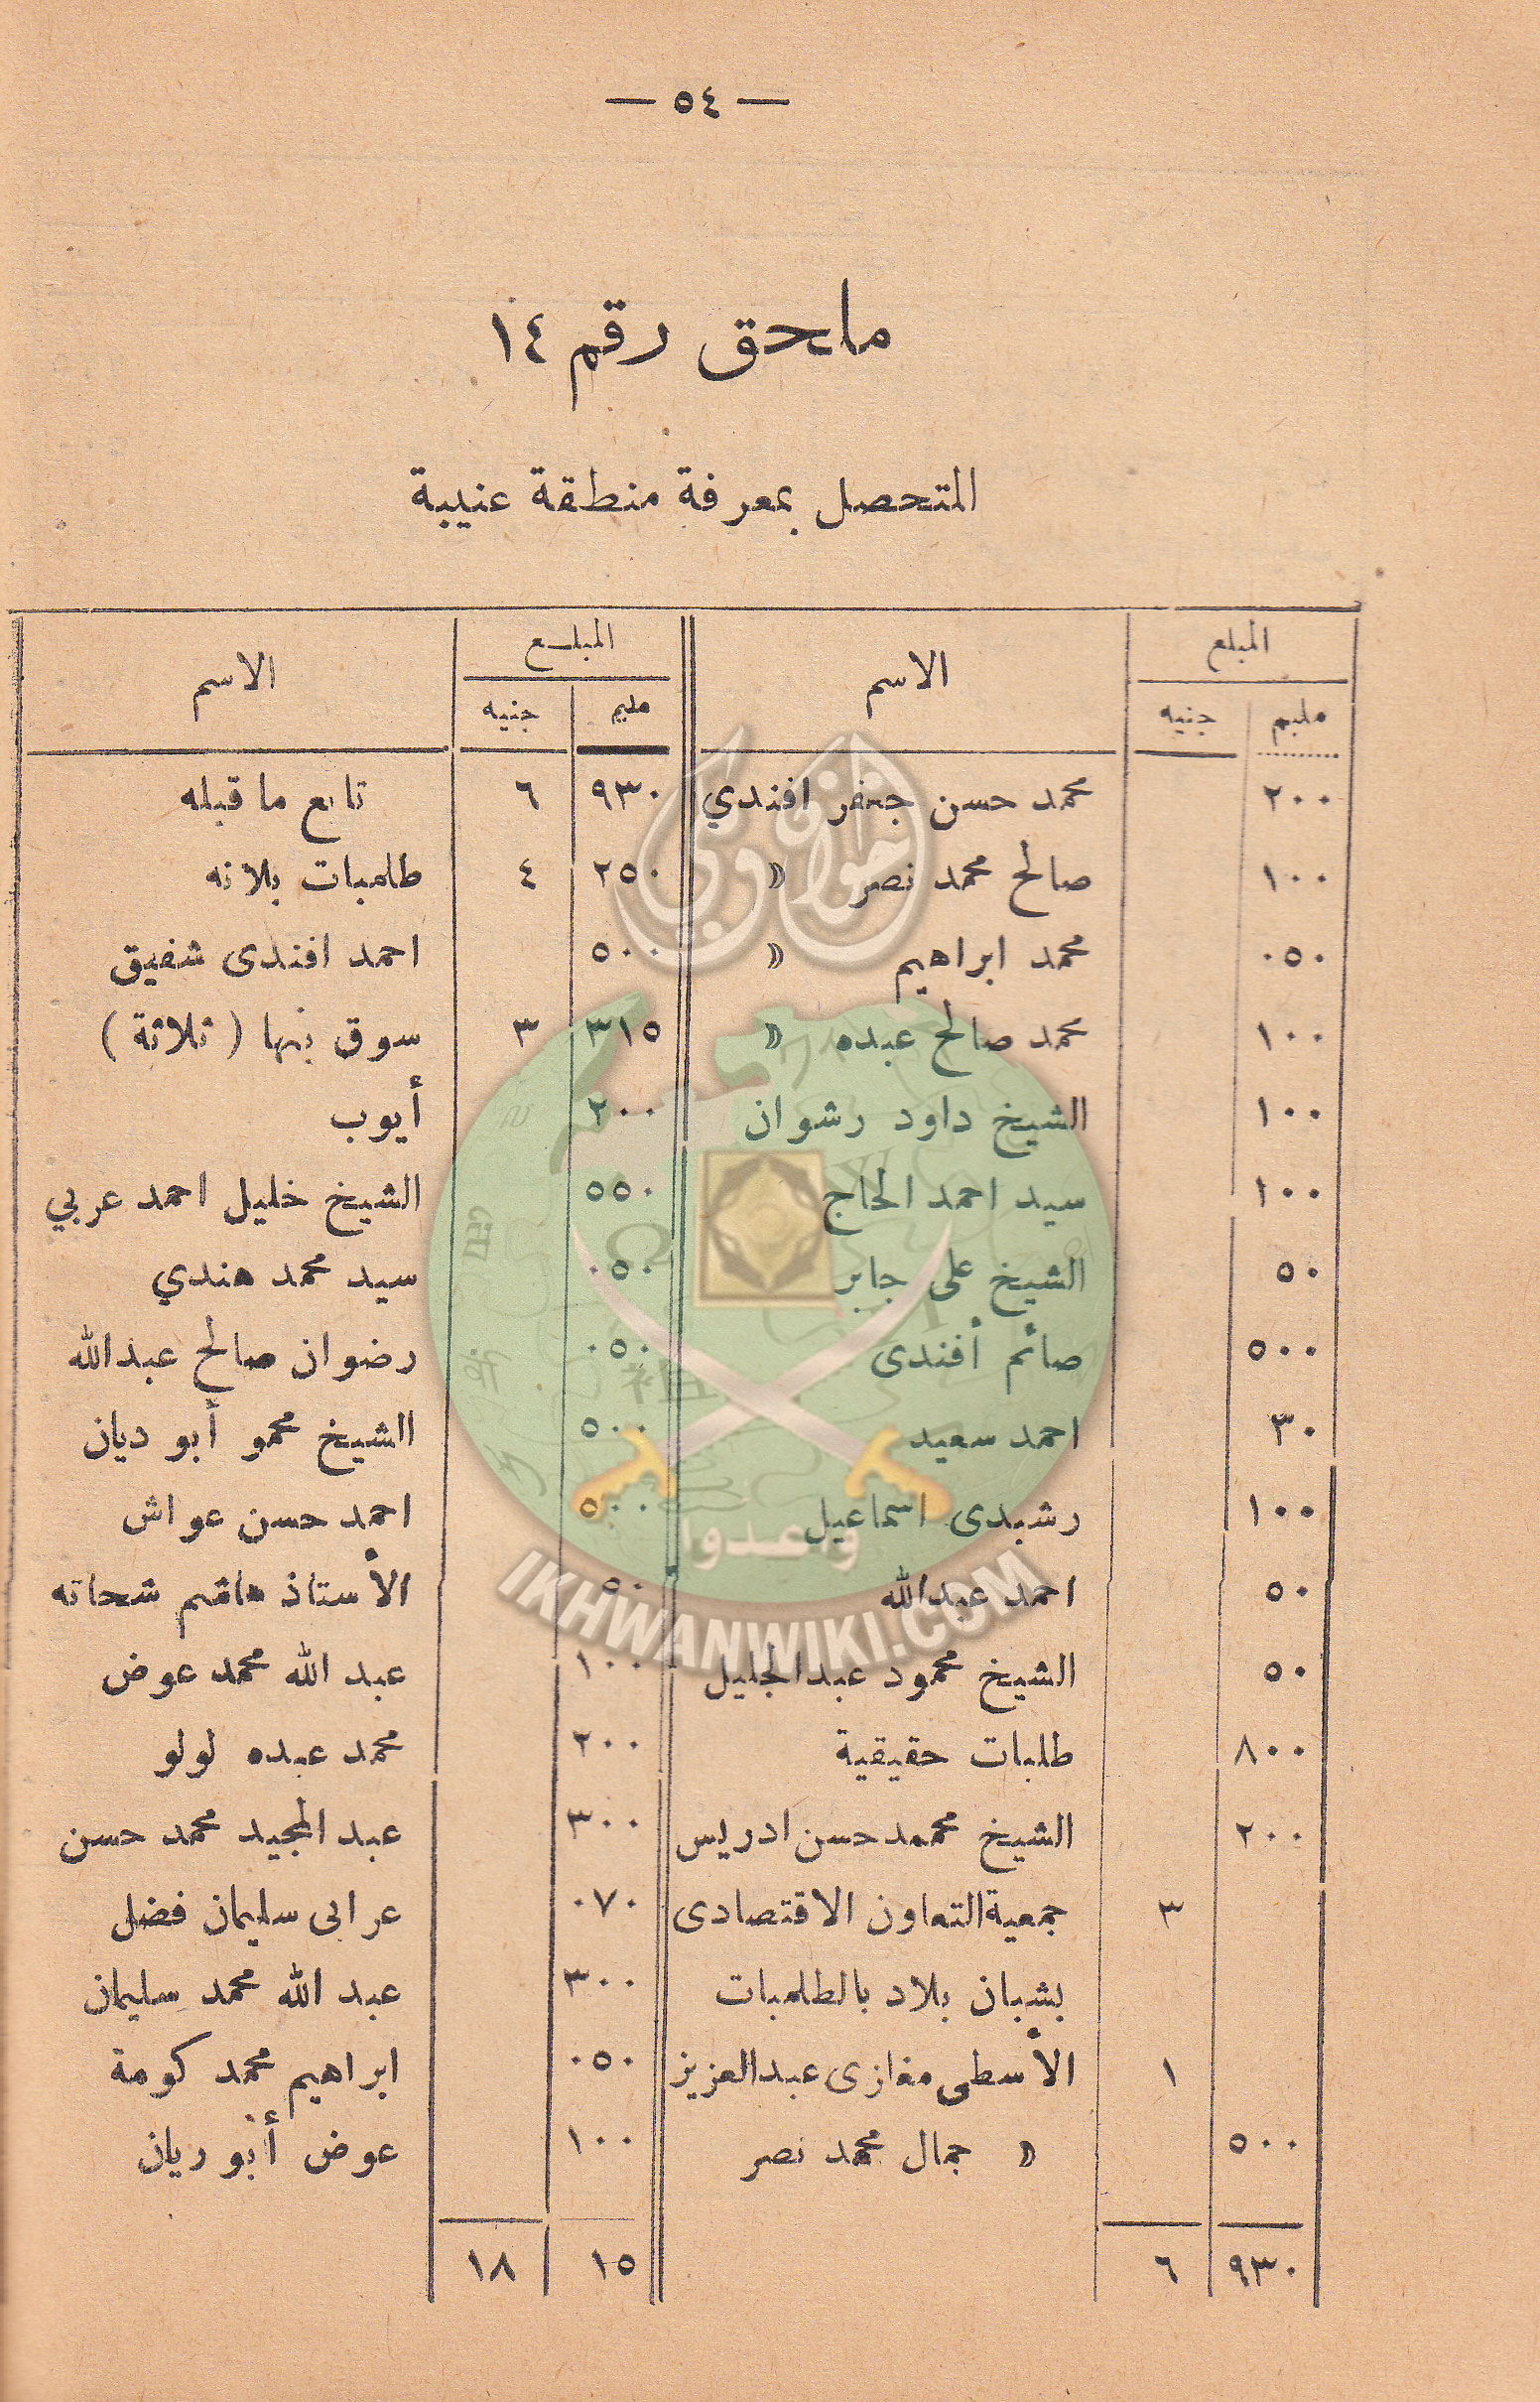 — ٥٤ —
ملحق رقم ١٤
المتحصل بمعرفة منطقة عنيبة
المبلغ الاسم المبلغ الاسم
مليم جنيه مليم جنيه
٢٠٠ محمد حسن جعفر افندي ٩٣٠ ٦ تابع ما قبله
١٠٠ صالح محمد نصر » ٢٥٠ ٤ طلمبات بلانه
٠٥٠ محمد ابراهيم » ٥٠٠ احمد افندى شفيق
١٠٠ محمد صالح عبده » ٣١٥ ٣ سوق بنها ( ثلاثة )
١٠٠ الشيخ داود رشوان ٢٠٠ أيوب
١٠٠ سيد احمد الحاج ٥٥٠ الشيخ خليل احمد عربي
٥٠ الشيخ على جابر ٠٥٠ سيد محمد هندي
٥٠٠ صائم أفندى ٠٥٠ رضوان صالح عبدالله
٣٠ احمد سعيد ٥٠٠ الشيخ محمو أبو ديان
١٠٠ رشيدى اسماعيل ٥٠٠ احمد حسن عواش
٥٠ احمد عبدالله ٥٠ الأستاذ هاشم شحاته
٥٠ الشيخ محمود عبدالجليل ١٠٠ عبد الله محمد عوض
٨٠٠ طلبات حقيقية ٢٠٠ محمد عبده لولو
٢٠٠ الشيخ محمد حسن ادريس ٣٠٠ عبد المجيد محمد حسن
٣ جمعية التعاون الاقتصادى ٠٧٠ عرابى سليمان فضل
بشبان بلاد بالطلمبات ٣٠٠ عبد الله محمد سليمان
١ الأسطى مغازى عبدالعزيز ٠٥٠ ابراهيم محمد كومة
٥٠٠ » جمال محمد نصر ١٠٠ عوض أبو ريان
٩٣٠ ٦ ١٥ ١٨
إخوان ويكي
وأعدوا
IKHWANWIKI.COM